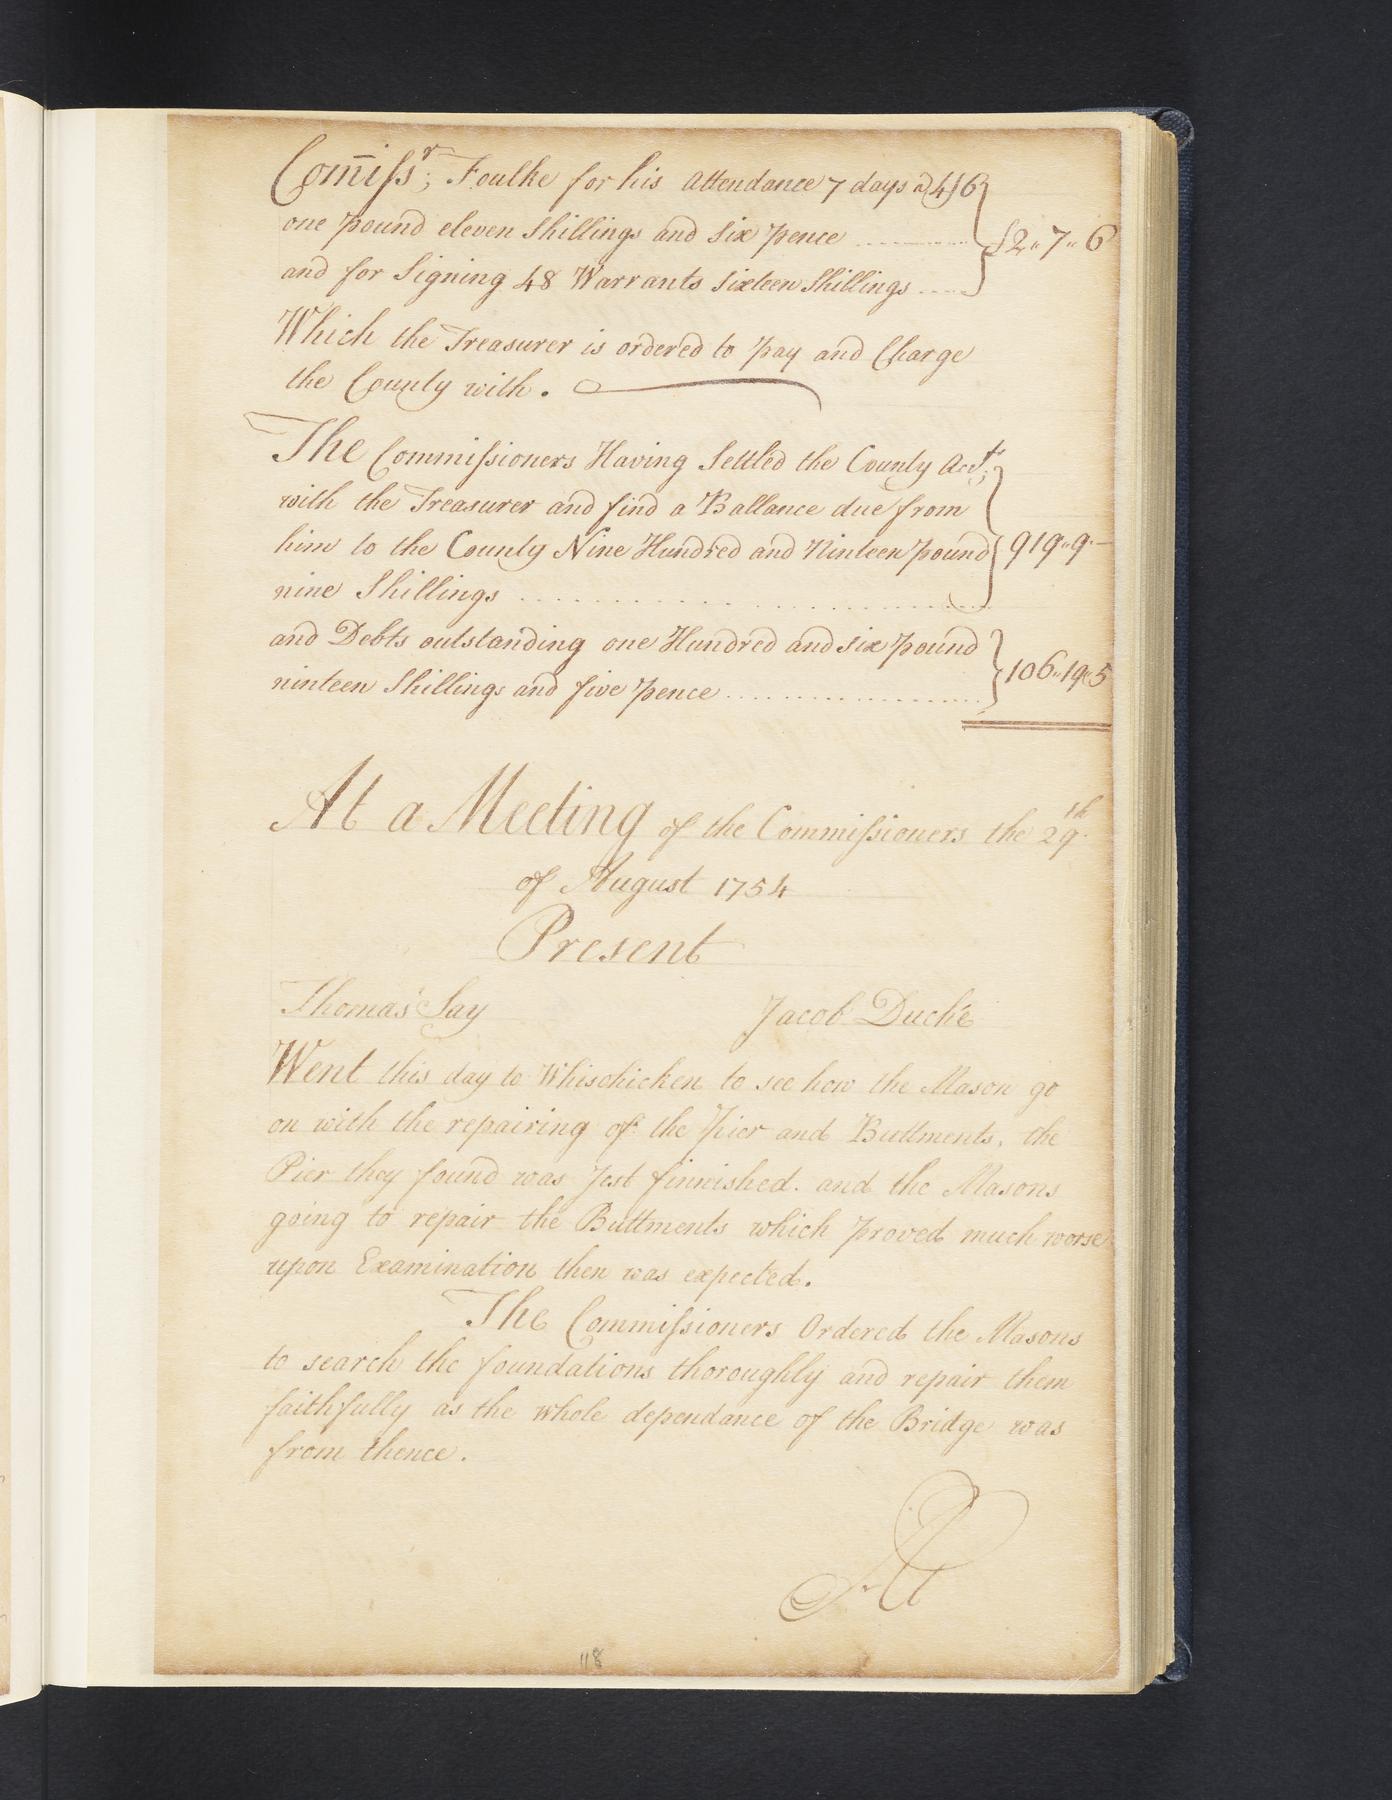 Com̄iſsr; Foulke for his Attendance 7 days a 4/6
one pound eleven Shillings and Six pence ............ £2„7„6
and for Signing 48 Warrants Sixteen Shillings ....
Which the Treasurer is ordered to pay and Charge
the County with.
The Commiſsioners Having Settled the County Acct;
with the Treasurer and find a Ballance due from
him to the County Nine Hundred and Ninteen pound 919„9„–
nine Shillings ............
and Debts outstanding one Hundred and Six pound
ninteen Shillings and five pence ............ 106„19„5
At a Meeting of the Commiſsioners the 29th
of August 1754
Present
Thomas Say Jacob Duché
Went this day to Whischicken to see how the Mason go
on with the repairing of the Pier and Buttments, the
Pier they found was Jest finnished. and the Masons
going to repair the Buttments which proved much worse
upon Examination then was expected.
The Commiſsioners Ordered the Masons
to search the foundations thoroughly and repair them
faithfully as the whole dependance of the Bridge was
from thence.
At
118